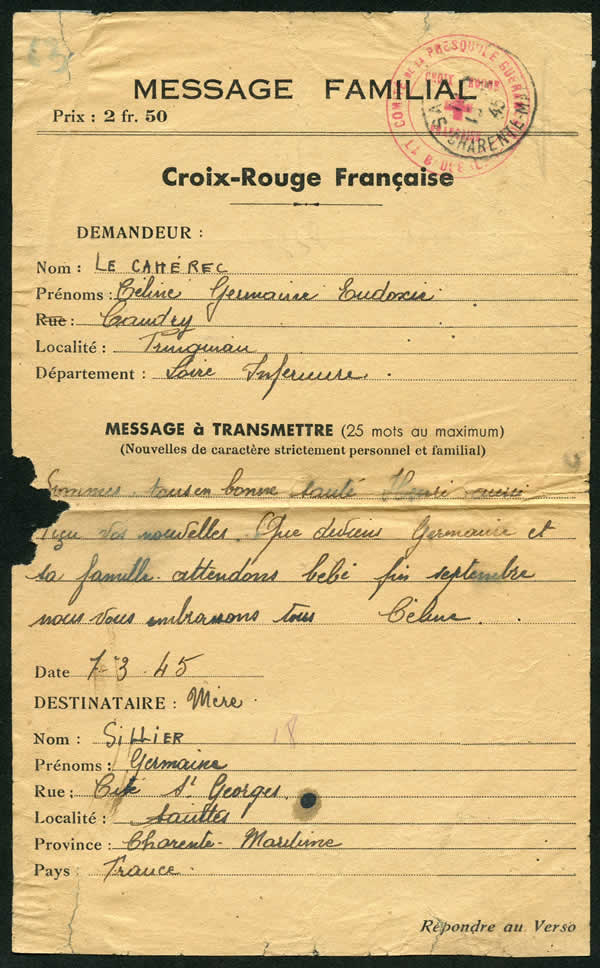 MESSAGE FAMILIAL
Prix : 2 fr. 50
COMITÉ DE LA PRESQU'ILE
CROIX ROUGE
CHARENTE-M
45
Croix-Rouge Française
DEMANDEUR :
Nom : LE CAHÉREC
Prénoms : Céline Germaine Eudoxie
Rue : Caudry
Localité : Trignian
Département : Loire Inférieure.
MESSAGE à TRANSMETTRE (25 mots au maximum)
(Nouvelles de caractère strictement personnel et familial)
Sommes tous en bonne santé Henri aussi
reçu vos nouvelles. Que deviens Germaine et
sa famille. attendons bébé fin septembre
nous vous embrassons tous Céline.
Date 7-3-45
DESTINATAIRE : Mère.
Nom : SILLIER 18
Prénoms : Germaine
Rue : Cité St Georges.
Localité : Saintes
Province : Charente-Maritime
Pays : France.
Répondre au Verso